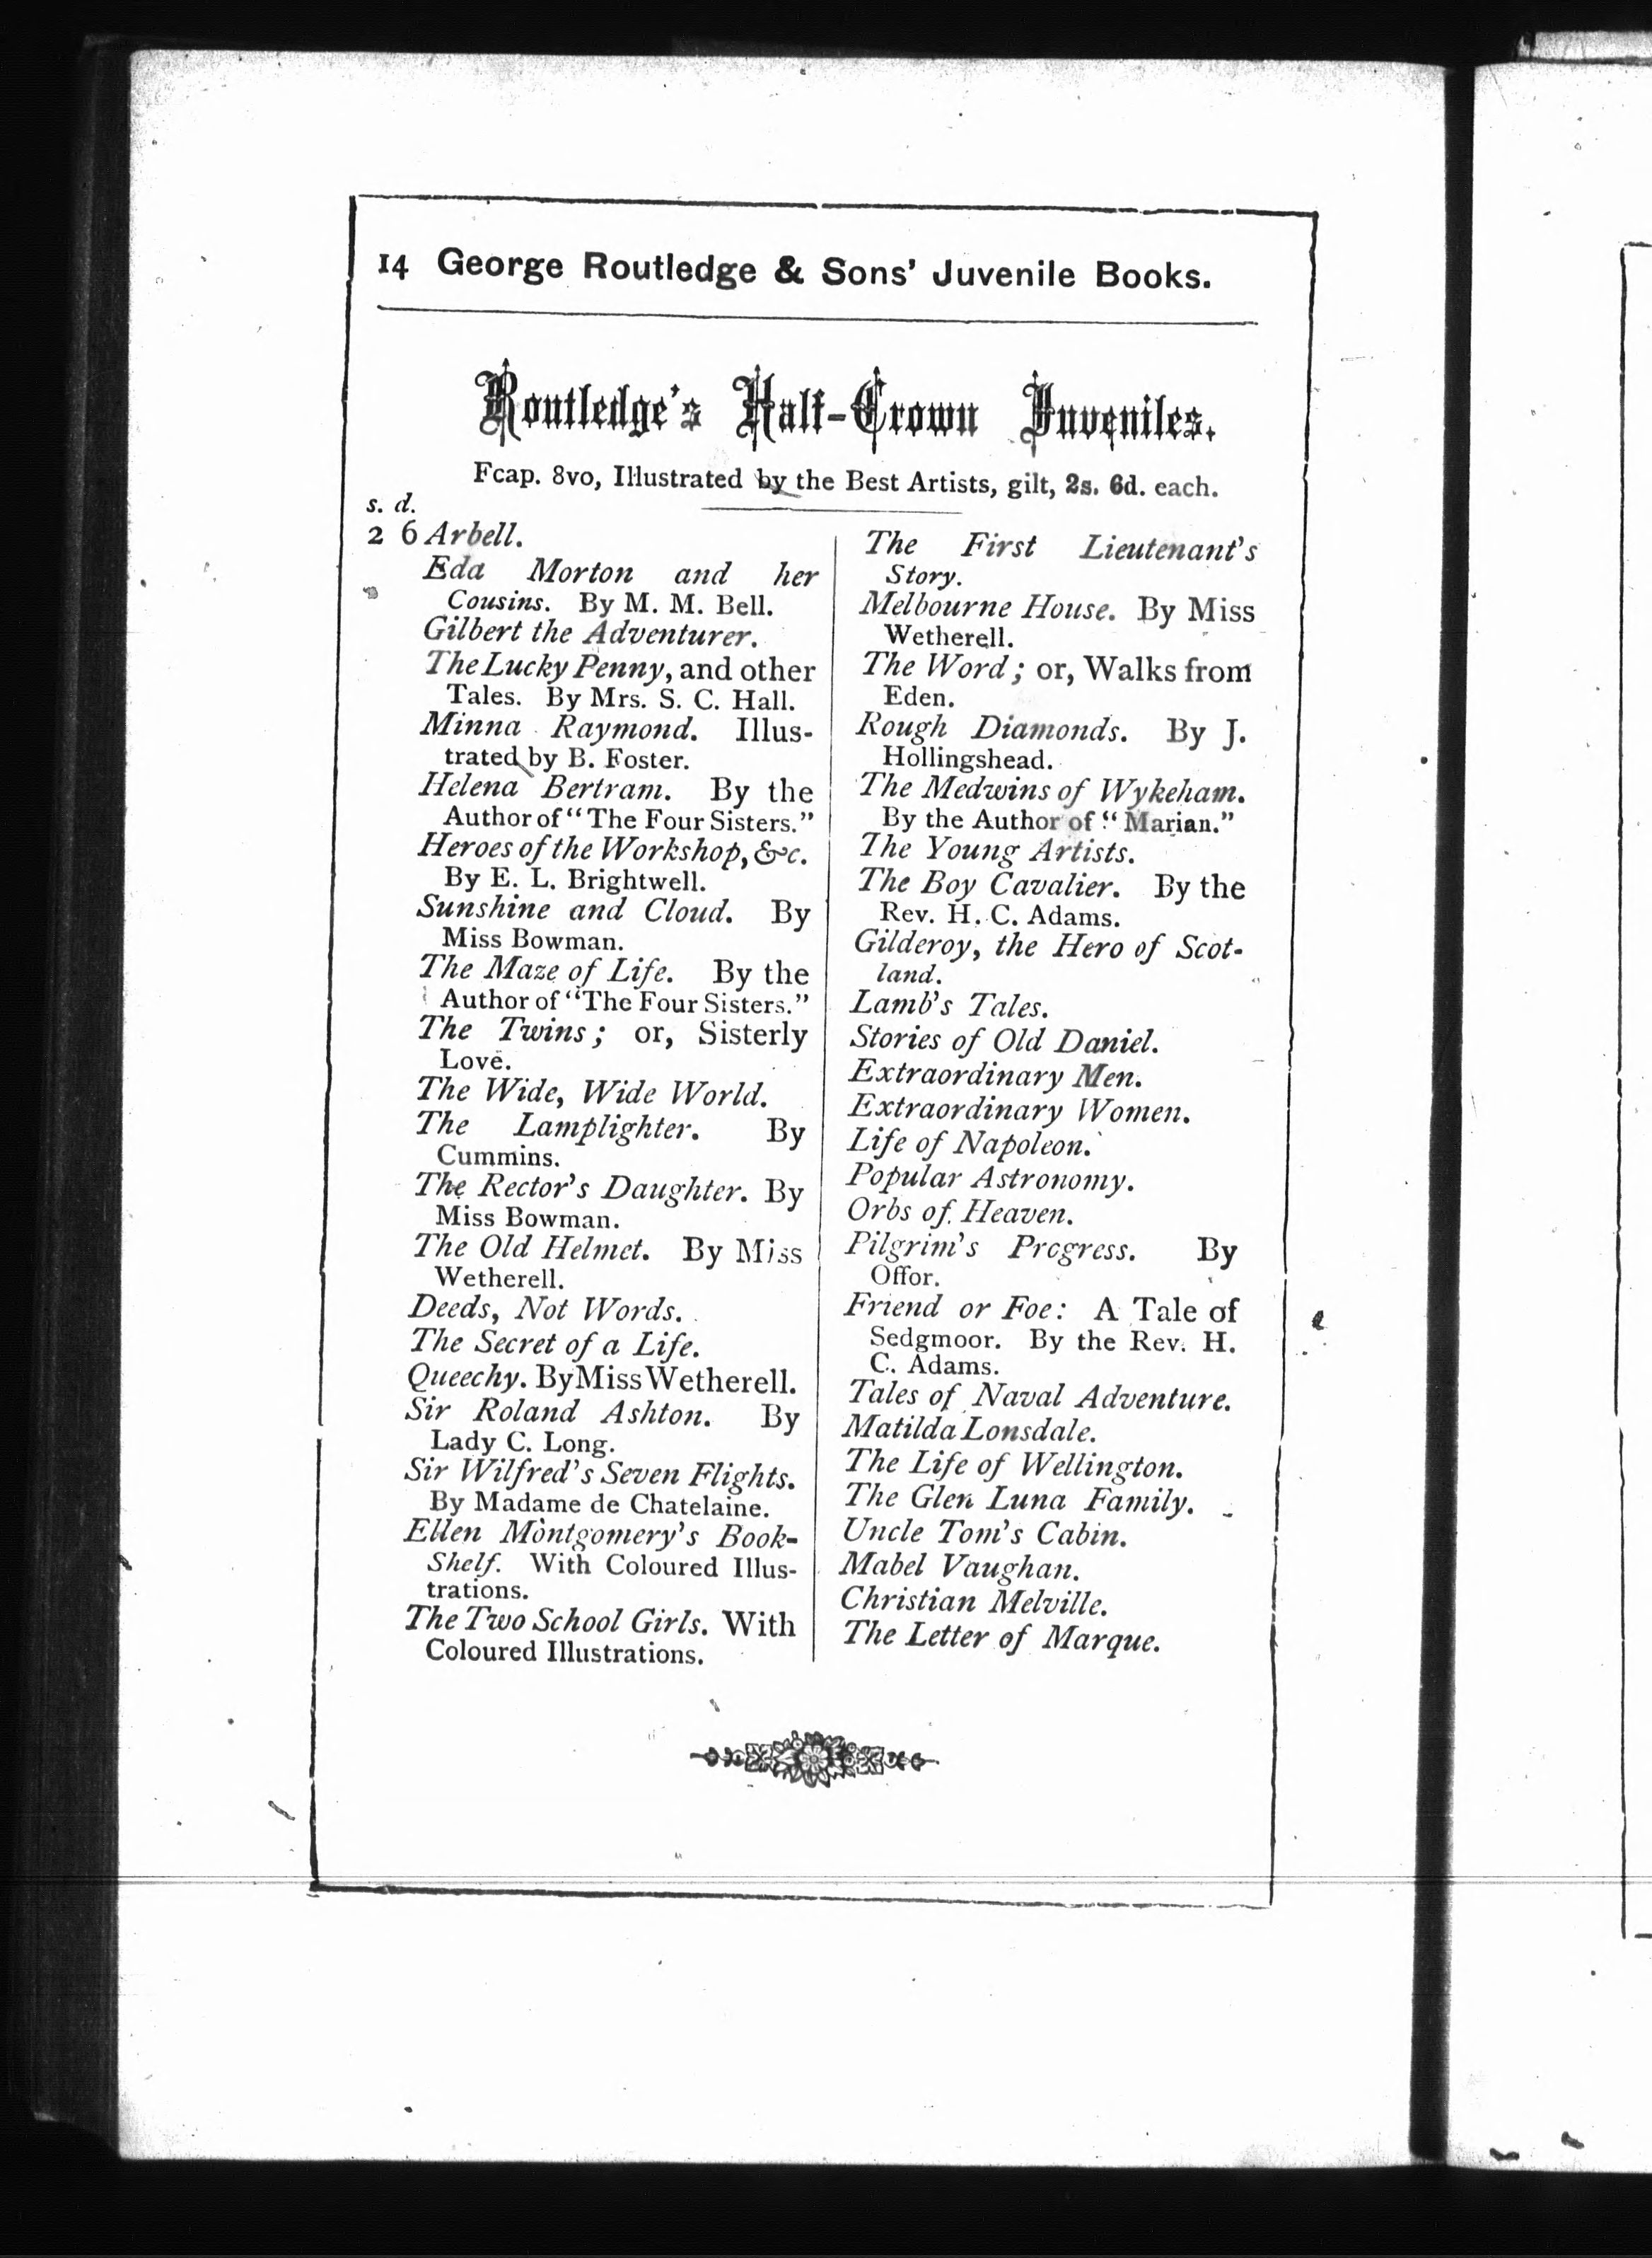 14 George Routledge & Sons' Juvenile Books.
Routledge's Half-Crown Juveniles.
Fcap. 8vo, Illustrated by the Best Artists, gilt, 2s. 6d. each.
s. d.
2 6 Arbell.
Eda Morton and her
Cousins. By M. M. Bell.
Gilbert the Adventurer.
The Lucky Penny, and other
Tales. By Mrs. S. C. Hall.
Minna Raymond. Illus-
trated by B. Foster.
Helena Bertram. By the
Author of "The Four Sisters."
Heroes of the Workshop, &c.
By E. L. Brightwell.
Sunshine and Cloud. By
Miss Bowman.
The Maze of Life. By the
Author of "The Four Sisters."
The Twins; or, Sisterly
Love.
The Wide, Wide World.
The Lamplighter. By
Cummins.
The Rector's Daughter. By
Miss Bowman.
The Old Helmet. By Miss
Wetherell.
Deeds, Not Words.
The Secret of a Life.
Queechy. By Miss Wetherell.
Sir Roland Ashton. By
Lady C. Long.
Sir Wilfred's Seven Flights.
By Madame de Chatelaine.
Ellen Montgomery's Book-
Shelf. With Coloured Illus-
trations.
The Two School Girls. With
Coloured Illustrations.
The First Lieutenant's
Story.
Melbourne House. By Miss
Wetherell.
The Word; or, Walks from
Eden.
Rough Diamonds. By J.
Hollingshead.
The Medwins of Wykeham.
By the Author of "Marian."
The Young Artists.
The Boy Cavalier. By the
Rev. H. C. Adams.
Gilderoy, the Hero of Scot-
land.
Lamb's Tales.
Stories of Old Daniel.
Extraordinary Men.
Extraordinary Women.
Life of Napoleon.
Popular Astronomy.
Orbs of Heaven.
Pilgrim's Progress. By
Offor.
Friend or Foe: A Tale of
Sedgmoor. By the Rev. H.
C. Adams.
Tales of Naval Adventure.
Matilda Lonsdale.
The Life of Wellington.
The Glen Luna Family.
Uncle Tom's Cabin.
Mabel Vaughan.
Christian Melville.
The Letter of Marque.